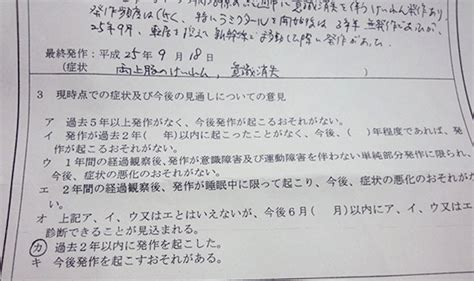 発作
25年9月、
新幹線で
最終発作：平成 25 年 9 月 18 日
（症状 両上肢のけいれん，意識消失 ）
3 現時点での症状及び今後の見通しについての意見
ア 過去5年以上発作がなく、今後発作が起こるおそれがない。
イ 発作が過去2年（ ）以内に起こったことがなく、今後、（ ）年程度であれば、
発作が起こるおそれがない。
ウ 1年間の経過観察後、発作が意識障害及び運動障害を伴わない単純部分発作に限られ、
今後、症状の悪化のおそれがない。
エ 2年間の経過観察後、発作が睡眠中に限って起こり、今後、症状の悪化のおそれがな
い。
オ 上記ア、イ、ウ又はエとはいえないが、今後6月（ 月）以内にア、イ、ウ又は
診断できることが見込まれる。
カ 過去2年以内に発作を起こした。
キ 今後発作を起こすおそれがある。